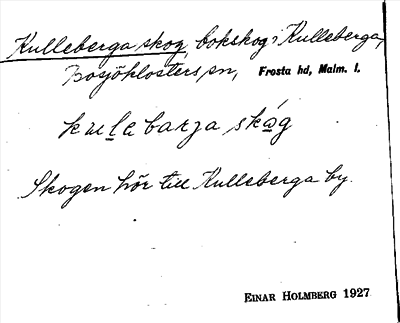 Kulleberga skog, bokskog i Kulleberga,
Bosjöklosters sn, Frosta hd, Malm. l.
kulabarja skåg
Skogen hör till Kulleberga by.
EINAR HOLMBERG 1927